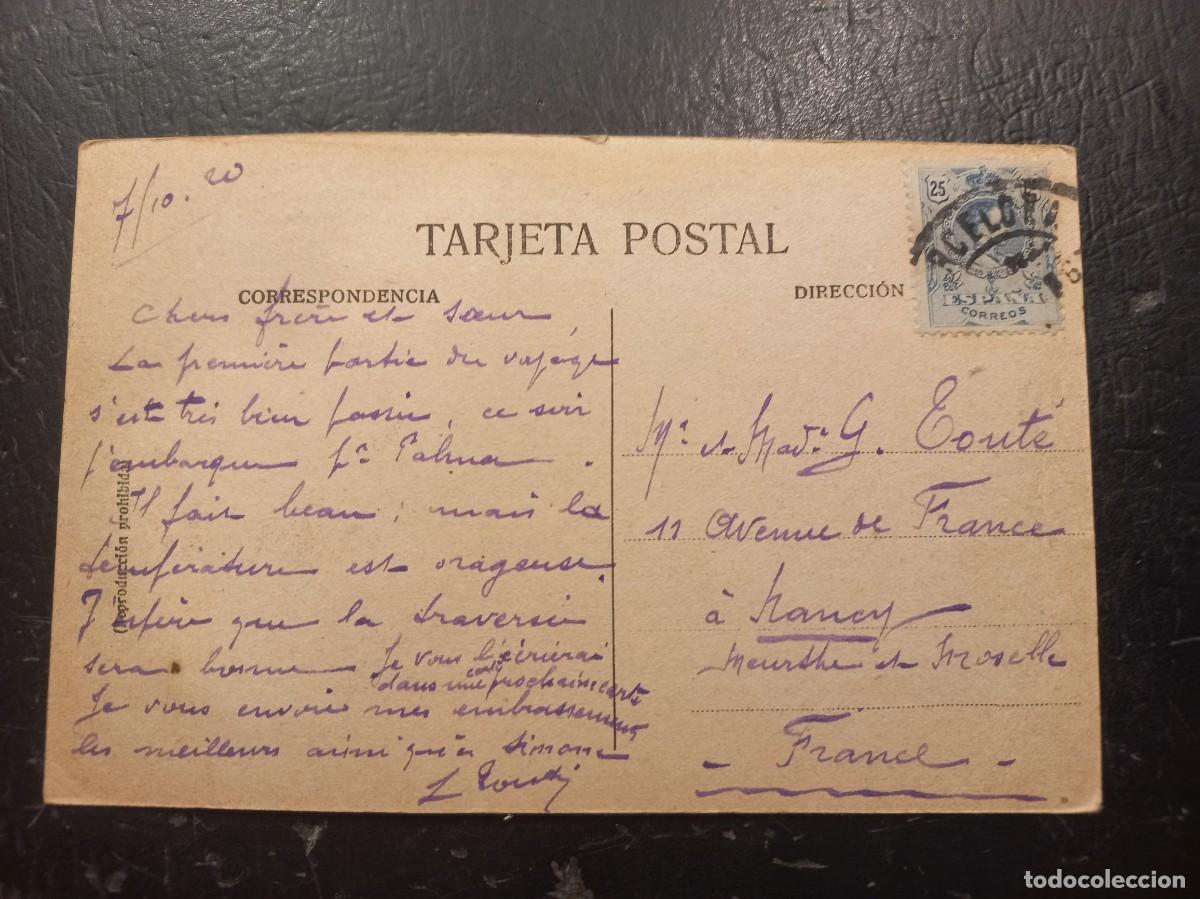 7/10. 20
TARJETA POSTAL
CORRESPONDENCIA
DIRECCIÓN
25
ESPAÑA
CORREOS
Chers frère et sœur,
La première partie du voyage
s'est très bien passée, ce soir
j'embarque pr Palma.
Il fait beau; mais la
température est orageuse.
J'espère que la traversée
sera bonne Je vous l'écrirai
dans une prochaine carte
Je vous envoie mes embrassements
les meilleurs ainsi qu'à Simone
(Reproducción prohibida)
Mr et Made G. Touté
11 Avenue de France
à Nancy
Meurthe et Moselle
- France -
todocoleccion